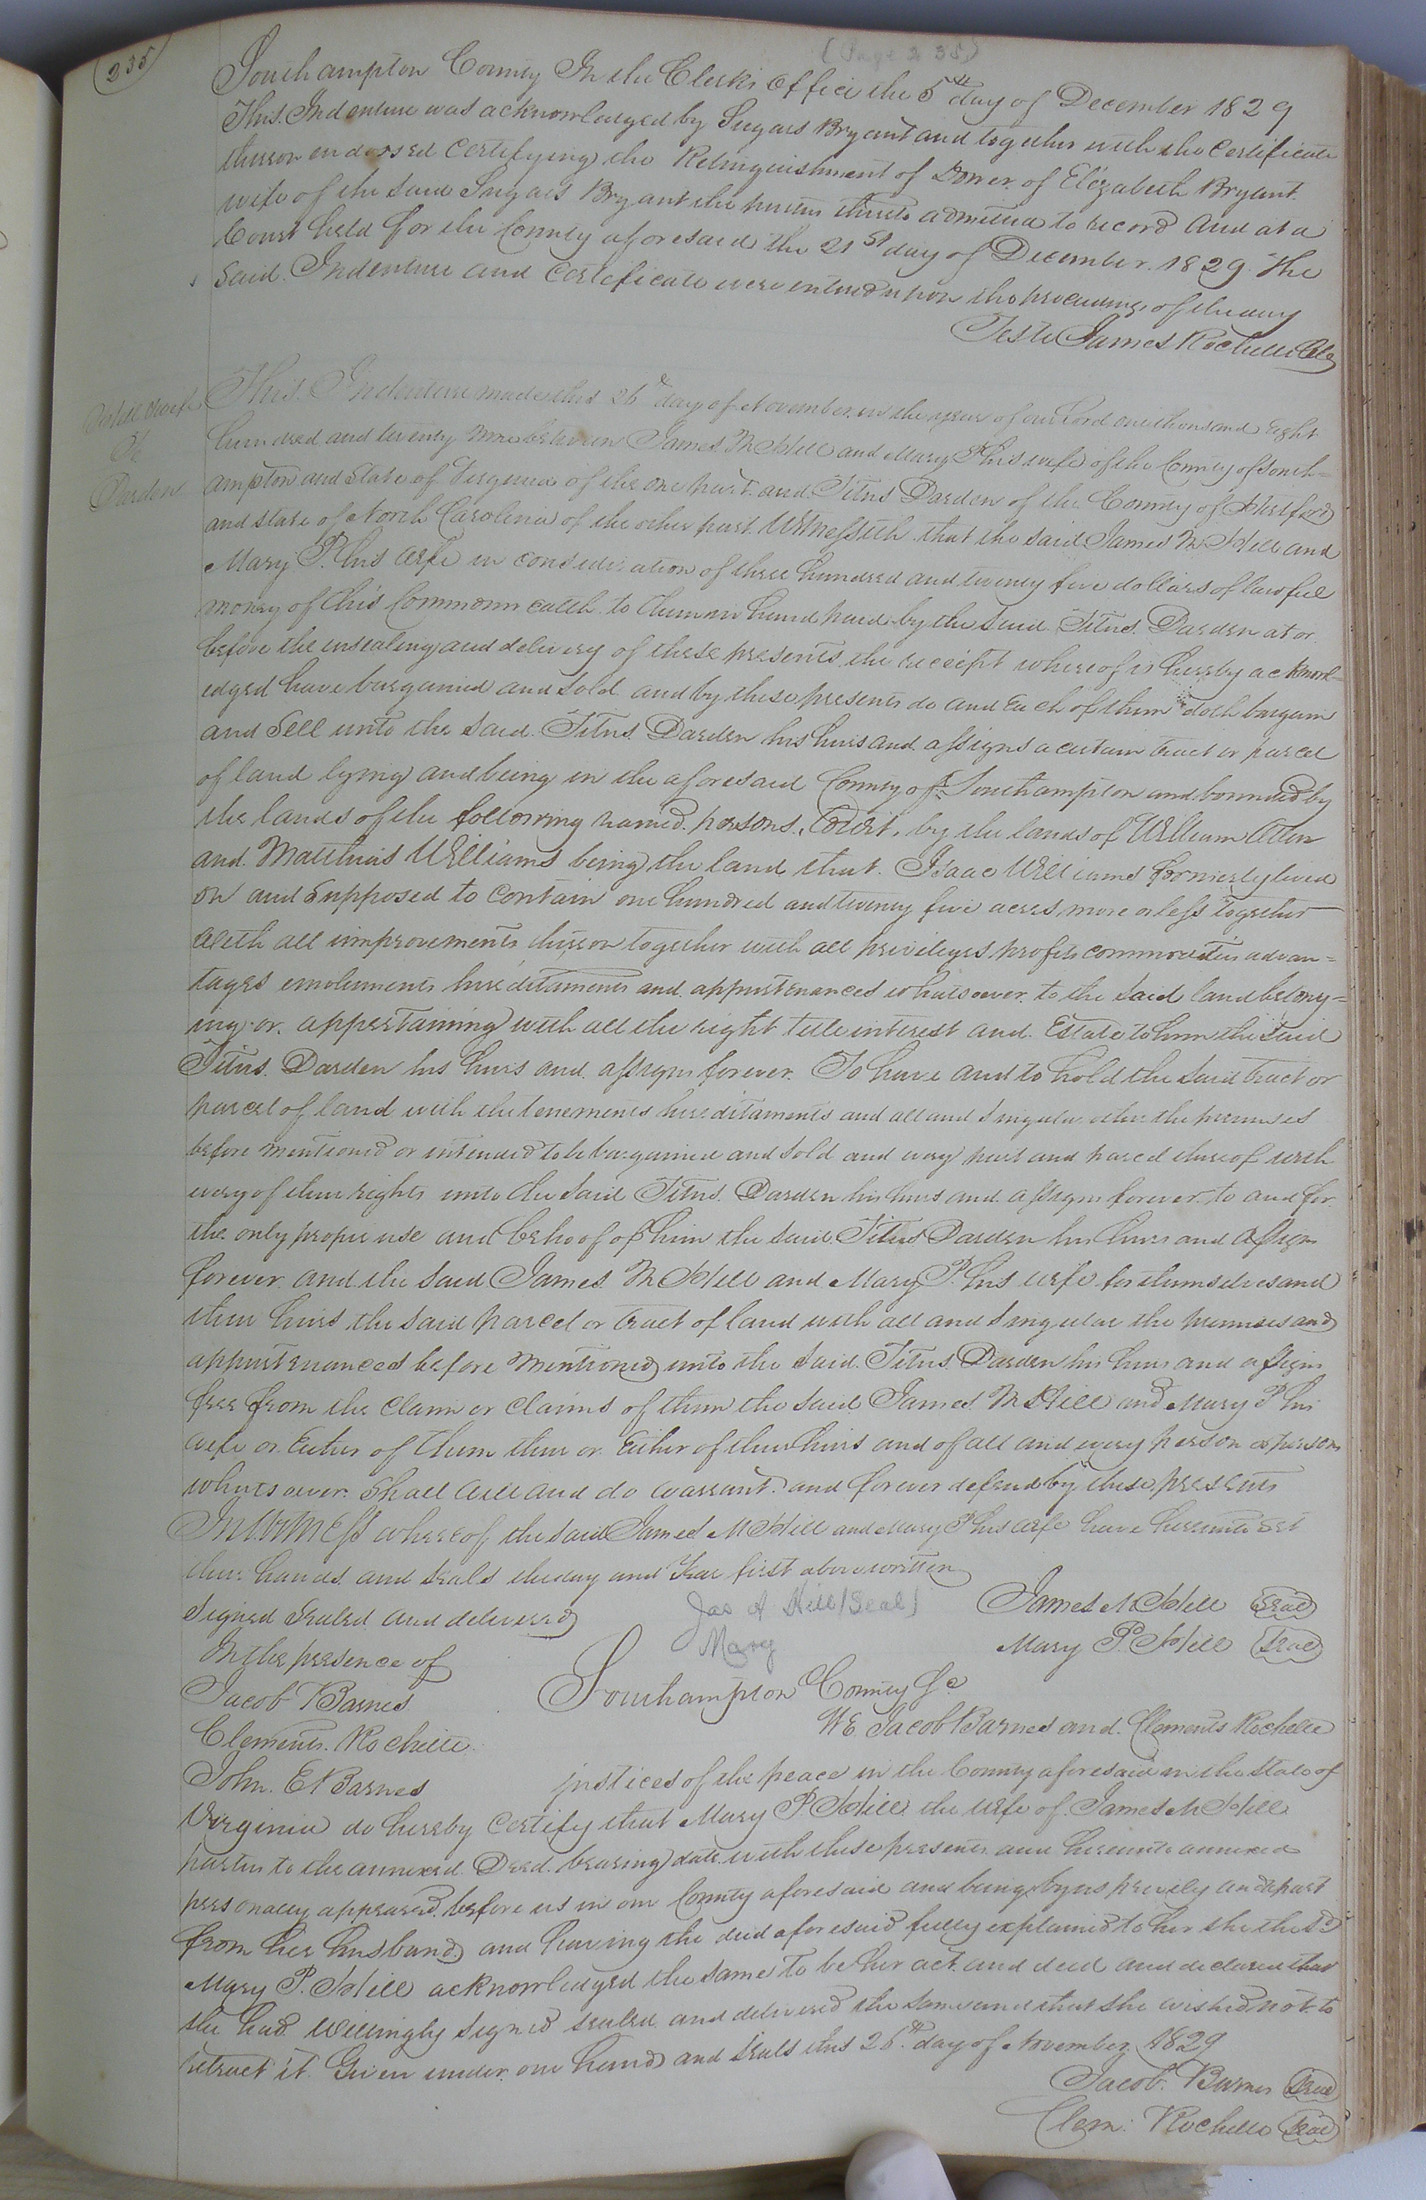 235
(Page 235)
Southampton County In the Clerks Office the 5th day of December 1829
This Indenture was acknowledged by Sugars Bryant and together with the Certificate
thereon endorsed Certifying the Relinquishment of Dower of Elizabeth Bryant
wife of the said Sugars Bryant the parties thereto admitted to record And at a
Court held for the County aforesaid the 21st day of December 1829 The
said Indenture and Certificate were entered upon the proceedings of the day
Teste James Rochelle Clk
Hill & wife
To
Darden
This Indenture made this 26th day of November in the year of our Lord one thousand Eight
hundred and twenty nine between James M Hill and Mary P his wife of the County of South-
ampton and State of Virginia of the one part and Titus Darden of the County of Hertford
and State of North Carolina of the other part Witnesseth that the said James M Hill and
Mary P. his wife in consideration of three hundred and twenty five dollars of lawful
money of this Commonwealth to them in hand paid by the said Titus Darden at or
before the ensealing and delivery of these presents the receipt whereof is hereby acknowl-
edged have bargained and sold and by these presents do and Each of them doth bargain
and Sell unto the said Titus Darden his heirs and assigns a certain tract or parcel
of land lying and being in the aforesaid County of Southampton and bounded by
the lands of the following named persons, Towit, by the lands of William
and Matthias Williams being the land that Isaac Williams formerly lived
on and supposed to contain one hundred and twenty five acres more or less together
With all improvements thereon together with all privileges profits commodities advan=
tages emoluments hereditaments and appurtenances whatsoever to the said land belong=
ing or appertaining with all the right title interest and Estate to him the said
Titus Darden his heirs and assigns forever. To have and to hold the said tract or
parcel of land with the tenements hereditaments and all and singular other the premises
before mentioned or intended to be bargained and sold and every part and parcel thereof with
every of their rights unto the said Titus Darden his heirs and assigns forever to and for
the only proper use and behoof of him the said Titus Darden his heirs and assigns
forever and the said James M Hill and Mary P. his wife for themselves and
their heirs the said parcel or tract of land with all and singular the premises and
appurtenances before mentioned unto the said Titus Darden his heirs and assigns
free from the claim or claims of them the said James M Hill and Mary P his
wife or Either of them their or Either of their heirs and of all and every person or persons
whatsoever shall will and do warrant and forever defend by these presents
In Witness whereof the said James M Hill and Mary P his wife have hereunto set
their hands and seals the day and Year first above written
Signed Sealed and delivered
In the presence of
Jacob Barnes
Clements Rochelle
John E Barnes
Jas A Hill (Seal)
Mary
James M Hill Seal
Mary P. Hill Seal
Southampton County Sc
We Jacob Barnes and Clements Rochelle
justices of the peace in the County aforesaid in the State of
Virginia do hereby certify that Mary P Hill the wife of James M Hill
parties to the annexed Deed bearing date with these presents and hereunto annexed
personally appeared before us in our County aforesaid and being by us privily and apart
from her husband and having the deed aforesaid fully explained to her she the sd
Mary P. Hill acknowledged the same to be her act and deed and declared that
she had willingly signed sealed and delivered the same and that she wished not to
retract it. Given under our hand and seals this 26th day of November 1829
Jacob Barnes Seal
Clem: Rochelle Seal